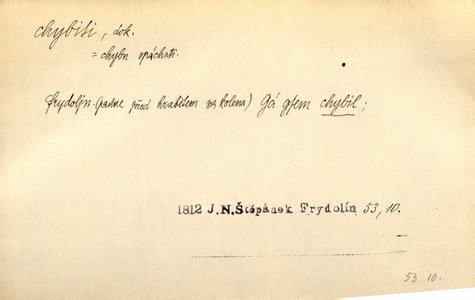 chybiti, dok.
= chybu spáchati.
Frydolín (padne před hrabětem na kolena) Gá gsem chybil;
1812 J.N.Štěpánek Frydolín 53, 10.
53 10.